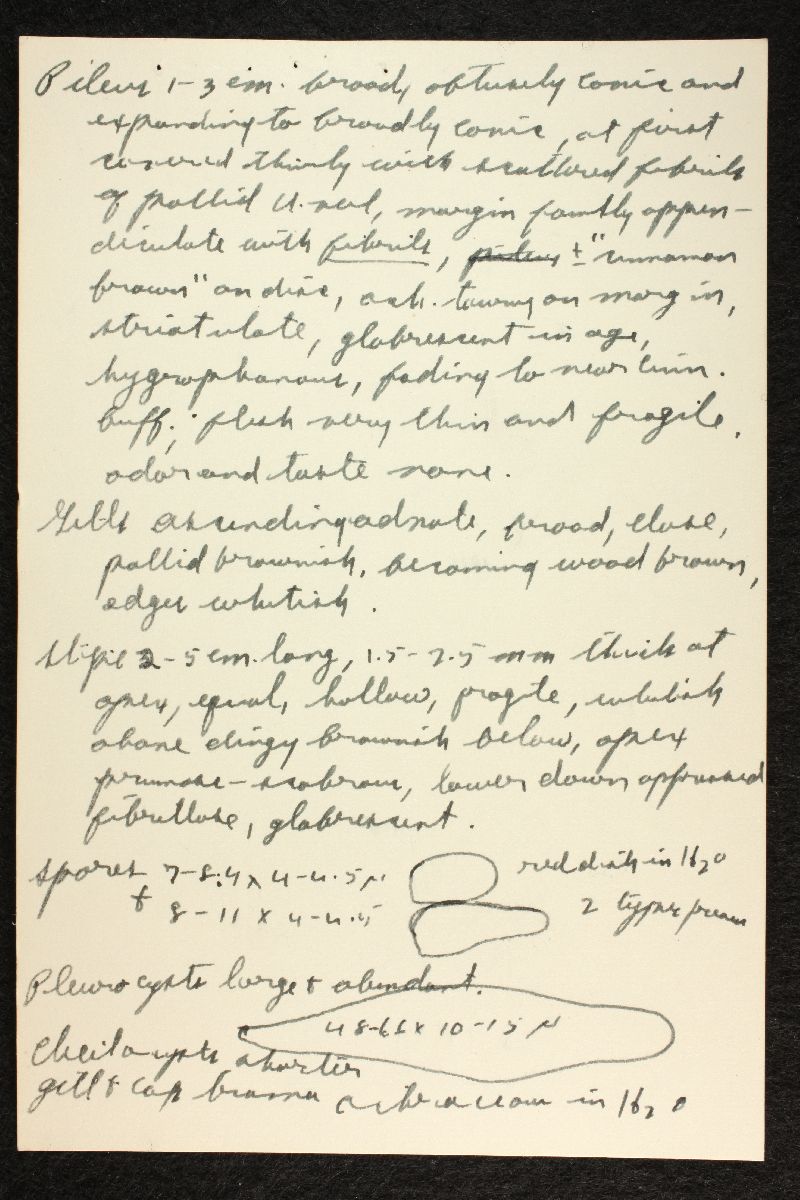 Pileus 1-3 cm. broad, obtusely conic and
expanding to broadly conic, at first
covered thinly with scattered fibrils
of pallid veil, margin faintly appen-
diculate with fibrils, pileus ± "cinnamon
brown" on disc, och. tawny on margin,
striatulate, glabrescent in age,
hygrophanous, fading to near cinn.
buff; flesh very thin and fragile,
odor and taste none.
Gills ascending adnate, broad, close,
pallid brownish, becoming wood brown,
edges whitish.
Stipe 2-5 cm. long, 1.5-2.5 mm thick at
apex, equal, hollow, fragile, whitish
above dingy brownish below, apex
pruinose-scabrous, lower down appressed
fibrillose, glabrescent.
Spores 7-8.4 x 4-4.5 µ reddish in H2O
+ 8-11 x 4-4.5 2 types present
Pleurocysts large + abundant.
48-66 x 10-15 µ
Cheilocysts shorter
gill + cap trama in H2O